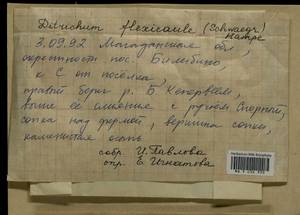 Ditrichum flexicaule (Schwaegr.)
Hampe
3.09.92 Магаданская обл,
окрестности пос. Билибино,
к С от поселка,
правый берег р. Б Кепервеем,
выше ее слияния с ручьем Спорный,
сопка над фермой, вершина сопки,
каменистая осыпь
собр. И. Павлова
опр. Е. Игнатова